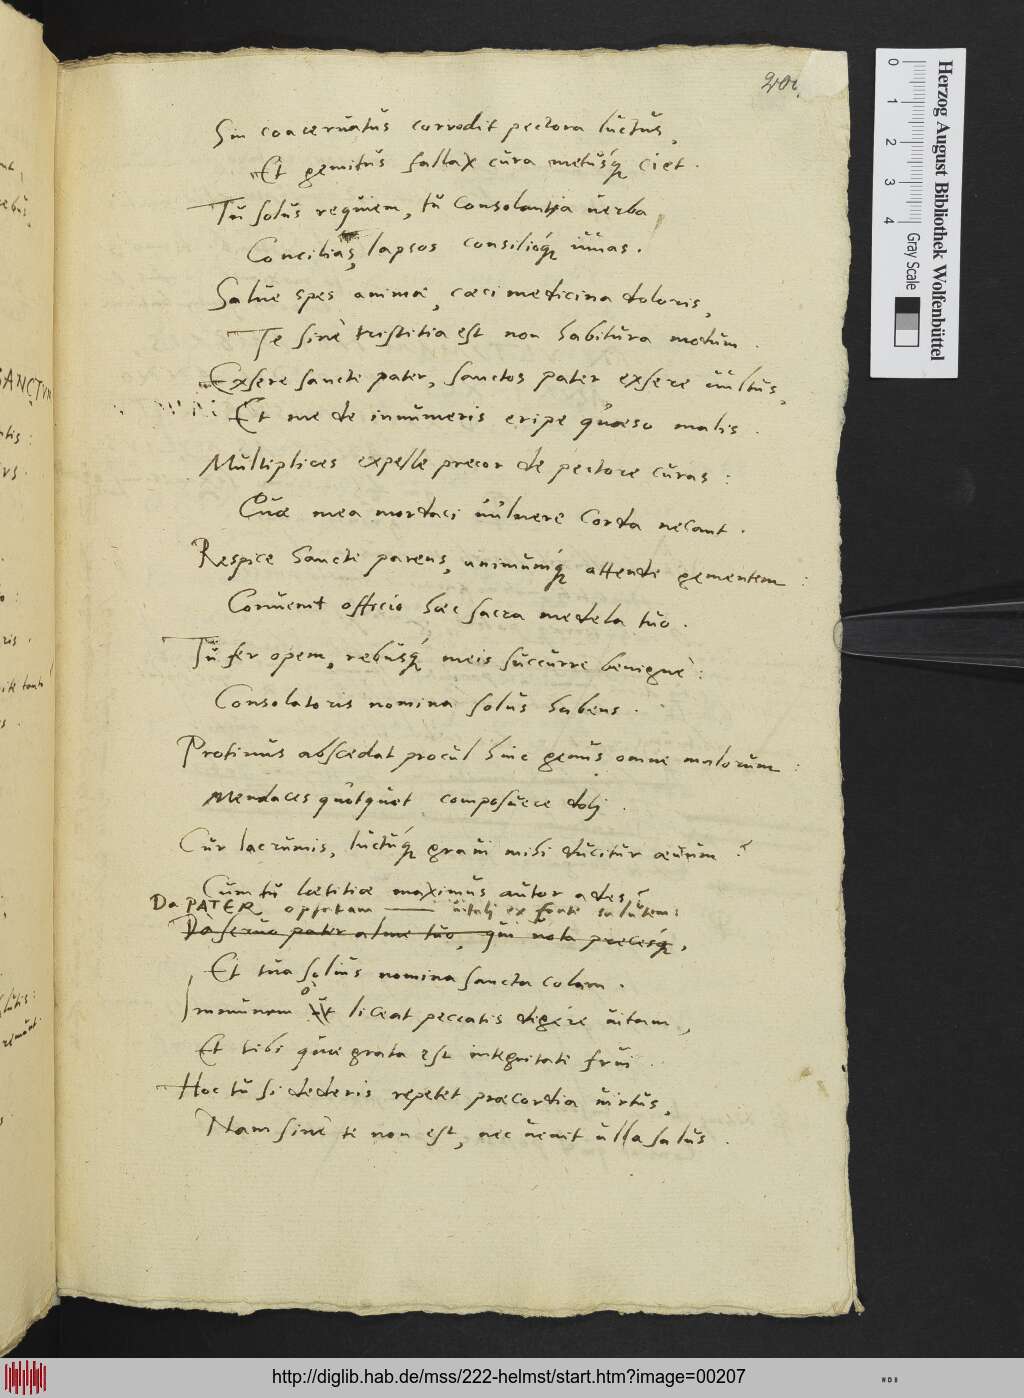 201.
Sin coacervatus corrodit pectora luctus,
Et gemitus fallax cura metusq́ ciet.
Tu solus requiem, tu consolantia verba
Concilias, lapsos consilioq́ iuvas.
Salve spes animæ, cæci medicina doloris,
Te sinè tristitia est non habitura modum.
Exsere sancte pater, sanctos pater exsere vultus,
Et me de innumeris eripe quæso malis.
Multiplices expelle precor de pectore curas:
Quæ mea mordaci vulnere corda necant.
Respice sancte parens, animumq́ attende gementem:
Convenit officio hæc sacra medela tuo.
Tu fer opem, rebusq́ meis succurre benignè:
Consolatoris nomina solus habens.
Protinus abscedat procul hinc genus omne malorum:
Mendaces quotquot composuere doli.
Cur lacrumis, luctuq́ gravi mihi ducitur ævum?
Cum tu lætitiæ maximus autor ades?
Da PATER optatam vitali ex fonte salutem:
Da servo pater alme tuo, qui vota precesq́,
Et tua solius nomina sancta colam.
Immunem ô liceat peccatis digere vitam,
Et tibi quæ grata est integritate frui.
Hoc tu si dederis repetet præcordia virtus,
Nam sinè te non est, nec venit ulla salus.
SANCTUM
Herzog August Bibliothek Wolfenbüttel
0 1 2 3 4
Gray Scale
http://diglib.hab.de/mss/222-helmst/start.htm?image=00207